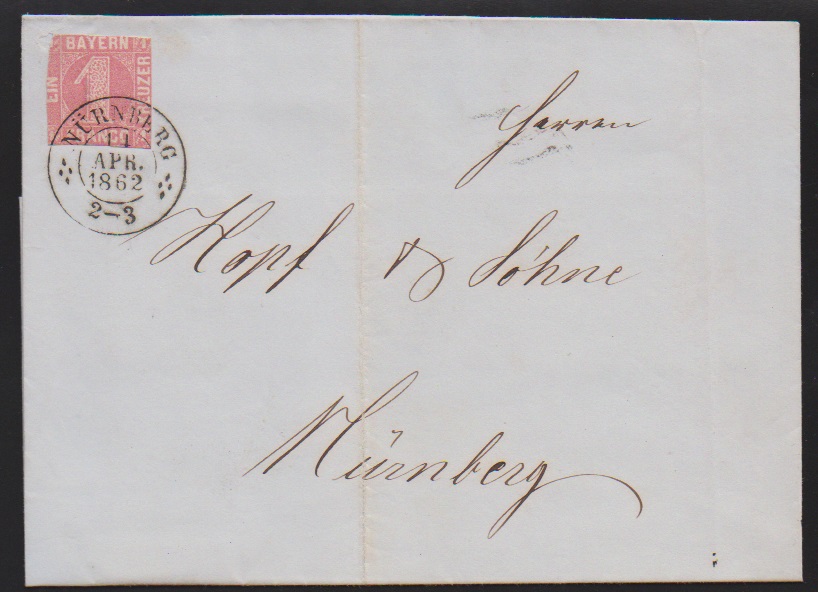 BAYERN
EIN
KREUZER
FRANCO
1
NÜRNBERG
11
APR.
1862
2–3
Herren
Kopf & Söhne
Nürnberg